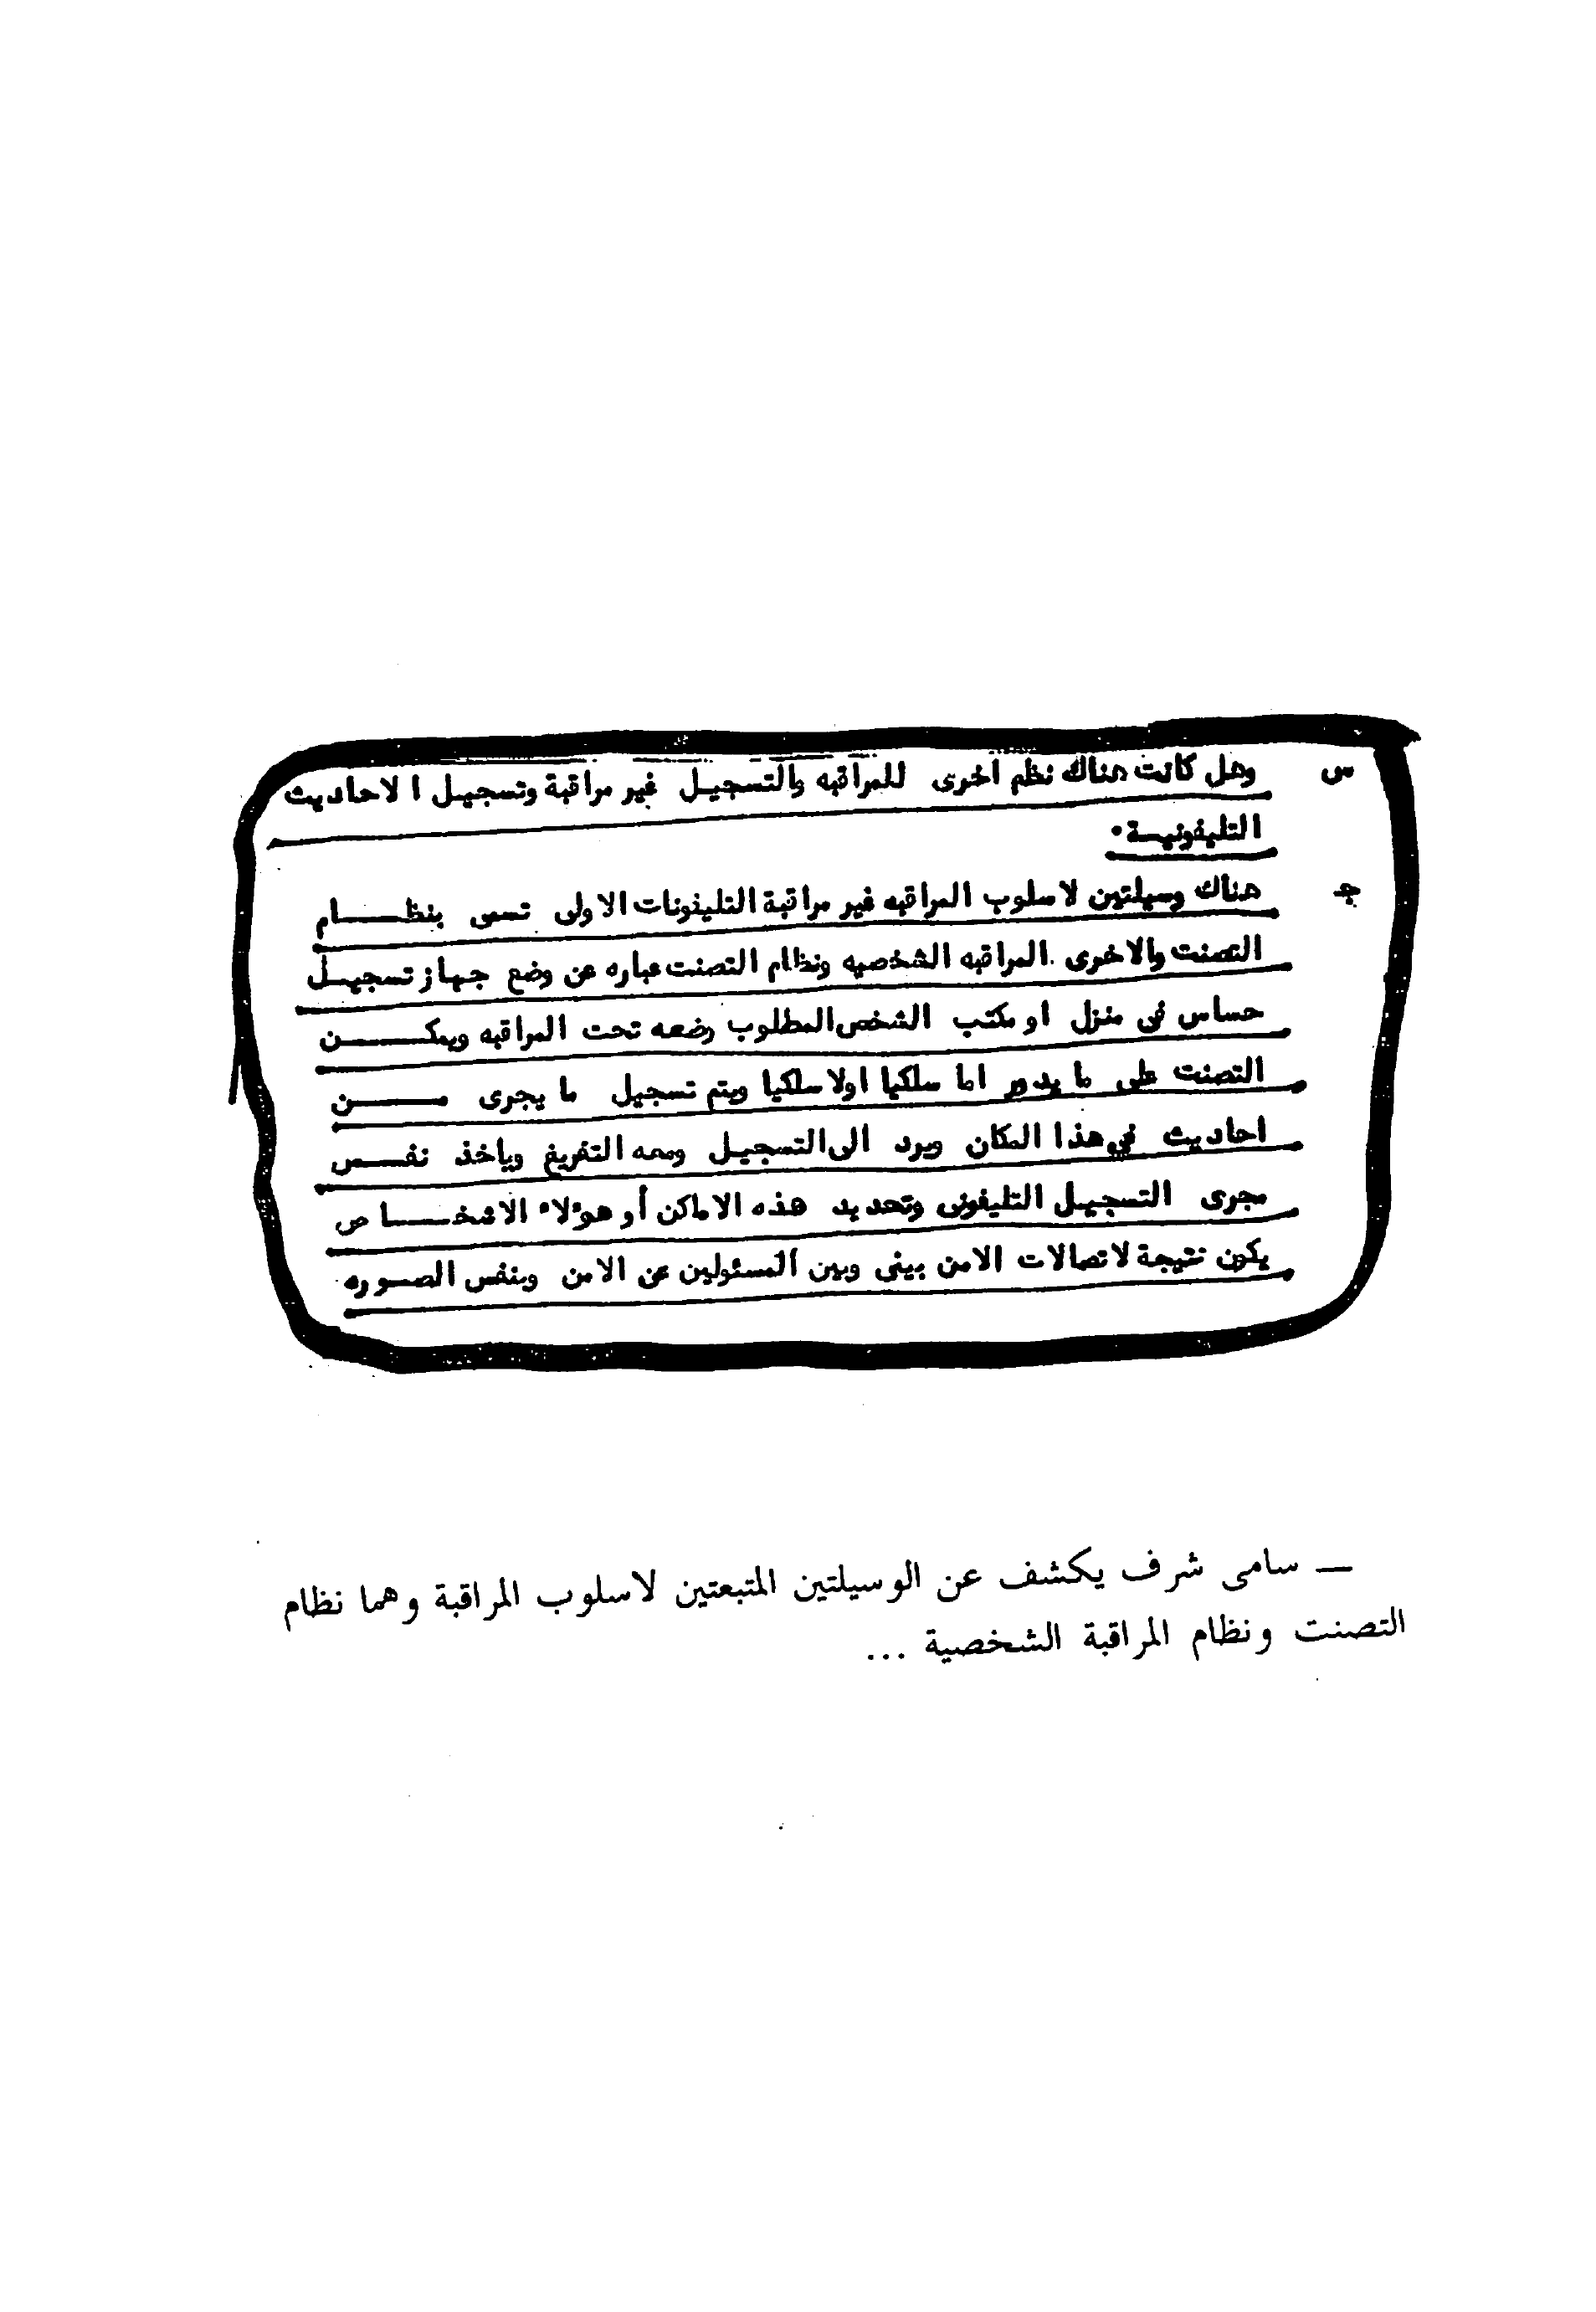 س وهل كانت هناك نظم اخرى للمراقبه والتسجيل غير مراقبة وتسجيل الاحاديث
التليفونية ·
جـ هناك وسيلتين لاسلوب المراقبه غير مراقبة التليفونات الاولى تسمى بنظـــام
التصنت والاخرى المراقبه الشخصيه ونظام التصنت عباره عن وضع جهاز تسجيل
حساس فى منزل او مكتب الشخص المطلوب وضعه تحت المراقبه ويمكـــــن
التصنت على ما يدور اما سلكيا اولا سلكيا ويتم تسجيل ما يجرى مـــــن
احاديث فى هذا المكان ويرد الى التسجيل ومعه التفريغ وياخذ نفـــس
مجرى التسجيل التليفونى وتحديد هذه الاماكن أو هؤلاء الاشخـــاص
يكون نتيجة لاتصالات الامن بينى وبين المسئولين عن الامن وبنفس الصــوره
— سامى شرف يكشف عن الوسيلتين المتبعتين لاسلوب المراقبة وهما نظام
التصنت ونظام المراقبة الشخصية ...